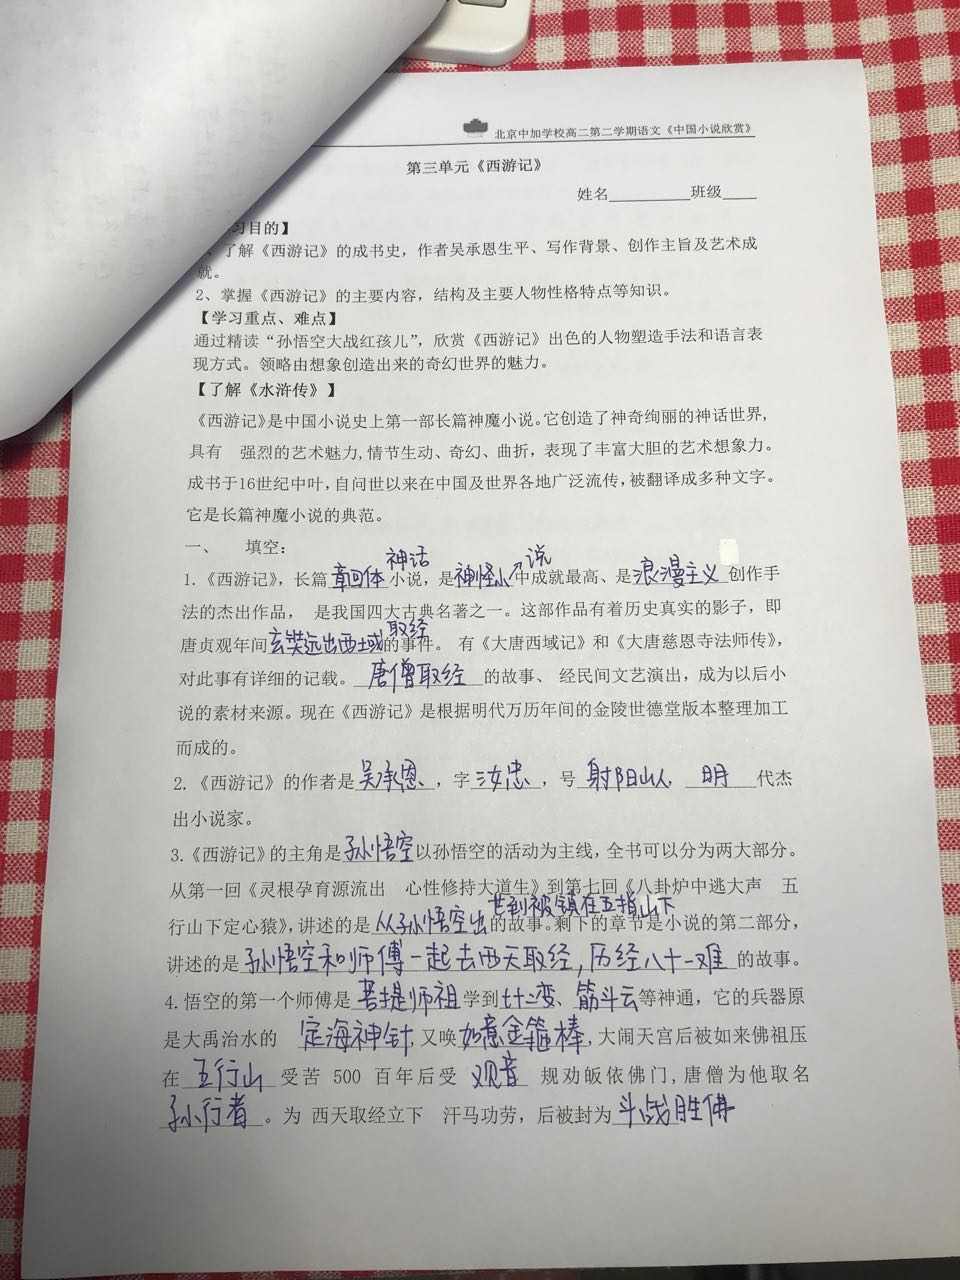 北京中加学校高二第二学期语文《中国小说欣赏》
第三单元《西游记》
姓名 班级
习目的】
、了解《西游记》的成书史，作者吴承恩生平、写作背景、创作主旨及艺术成
就。
2、掌握《西游记》的主要内容，结构及主要人物性格特点等知识。
【学习重点、难点】
通过精读“孙悟空大战红孩儿”，欣赏《西游记》出色的人物塑造手法和语言表
现方式。领略由想象创造出来的奇幻世界的魅力。
【了解《水浒传》】
《西游记》是中国小说史上第一部长篇神魔小说。它创造了神奇绚丽的神话世界，
具有 强烈的艺术魅力,情节生动、奇幻、曲折，表现了丰富大胆的艺术想象力。
成书于16世纪中叶，自问世以来在中国及世界各地广泛流传，被翻译成多种文字。
它是长篇神魔小说的典范。
一、 填空：
1.《西游记》，长篇章回体神话小说，是神怪小说中成就最高、是浪漫主义创作手
法的杰出作品， 是我国四大古典名著之一。这部作品有着历史真实的影子，即
唐贞观年间玄奘远出西域取经的事件。 有《大唐西域记》和《大唐慈恩寺法师传》，
对此事有详细的记载。唐僧取经的故事、 经民间文艺演出，成为以后小
说的素材来源。现在《西游记》是根据明代万历年间的金陵世德堂版本整理加工
而成的。
2.《西游记》的作者是吴承恩，字汝忠，号射阳山人 明代杰
出小说家。
3.《西游记》的主角是孙悟空以孙悟空的活动为主线，全书可以分为两大部分。
从第一回《灵根孕育源流出 心性修持大道生》到第七回《八卦炉中逃大声 五
行山下定心猿》，讲述的是从孙悟空出世到被镇在五指山下的故事。剩下的章节是小说的第二部分，
讲述的是孙悟空和师傅一起去西天取经，历经八十一难的故事。
4.悟空的第一个师傅是菩提师祖学到七十二变、筋斗云等神通，它的兵器原
是大禹治水的 定海神针，又唤如意金箍棒，大闹天宫后被如来佛祖压
在五行山受苦 500 百年后受 观音 规劝皈依佛门,唐僧为他取名
孙行者。为 西天取经立下 汗马功劳，后被封为斗战胜佛